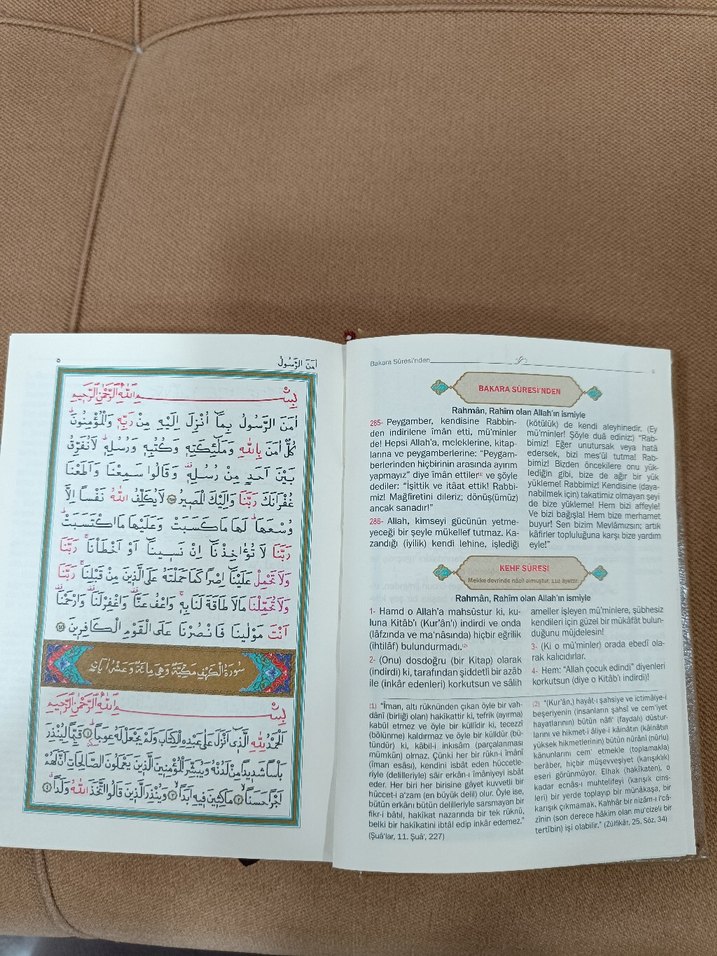 ٥
اٰمَنَ الرَّسُولُ
بِسْــــمِ اللّٰهِ الرَّحْمٰنِ الرَّحِيمِ
اٰمَنَ الرَّسُولُ بِمَٓا اُنْزِلَ اِلَيْهِ مِنْ رَبِّهٖ وَالْمُؤْمِنُونَۜ
كُلٌّ اٰمَنَ بِاللّٰهِ وَمَلٰٓئِكَتِهٖ وَكُتُبِهٖ وَرُسُلِهٖۜ لَا نُفَرِّقُ
بَيْنَ اَحَدٍ مِنْ رُسُلِهٖۜ وَقَالُوا سَمِعْنَا وَاَطَعْنَا
غُفْرَانَكَ رَبَّنَا وَاِلَيْكَ الْمَصِيرُ لَا يُكَلِّفُ اللّٰهُ نَفْسًا اِلَّا
وُسْعَهَاۜ لَهَا مَا كَسَبَتْ وَعَلَيْهَا مَا اكْتَسَبَتْۜ
رَبَّنَا لَا تُؤَاخِذْنَٓا اِنْ نَسِينَٓا اَوْ اَخْطَأْنَاۚ رَبَّنَا
وَلَا تَحْمِلْ عَلَيْنَٓا اِصْرًا كَمَا حَمَلْتَهُ عَلَى الَّذِينَ مِنْ قَبْلِنَاۚ رَبَّنَا
وَلَا تُحَمِّلْنَا مَا لَا طَاقَةَ لَنَا بِهٖۚ وَاعْفُ عَنَّا۠ وَاغْفِرْ لَنَا۠ وَارْحَمْنَا۠
اَنْتَ مَوْلٰينَا فَانْصُرْنَا عَلَى الْقَوْمِ الْكَافِرِينَ
سُورَةُ الْكَهْفِ مَكِّيَّةٌ وَهِيَ مِائَةٌ وَعَشْرُ اٰيَاتٍ
بِسْــــمِ اللّٰهِ الرَّحْمٰنِ الرَّحِيمِ
اَلْحَمْدُ لِلّٰهِ الَّذِٓي اَنْزَلَ عَلٰى عَبْدِهِ الْكِتَابَ وَلَمْ يَجْعَلْ لَهُ عِوَجًاۜ قَيِّمًا لِيُنْذِرَ
بَأْسًا شَدِيدًا مِنْ لَدُنْهُ وَيُبَشِّرَ الْمُؤْمِنِينَ الَّذِينَ يَعْمَلُونَ الصَّالِحَاتِ اَنَّ لَهُمْ
اَجْرًا حَسَنًاۙ مَاكِثِينَ فِيهِ اَبَدًاۙ وَيُنْذِرَ الَّذِينَ قَالُوا اتَّخَذَ اللّٰهُ وَلَدًاۗ
Bakara Sûresi'nden
BAKARA SÛRESİ'NDEN
Rahmân, Rahîm olan Allah'ın ismiyle
285- Peygamber, kendisine Rabbin-
den indirilene îmân etti, mü'minler
de! Hepsi Allah'a, meleklerine, kitap-
larına ve peygamberlerine: "Peygam-
berlerinden hiçbirinin arasında ayırım
yapmayız" diye îmân ettiler⁽¹⁾ ve şöyle
dediler: "İşittik ve itâat ettik! Rabbi-
miz! Mağfiretini dileriz; dönüş(ümüz)
ancak sanadır!"
286- Allah, kimseyi gücünün yetme-
yeceği bir şeyle mükellef tutmaz. Ka-
zandığı (iyilik) kendi lehine, işlediği
(kötülük) de kendi aleyhinedir. (Ey
mü'minler! Şöyle duâ ediniz:) "Rab-
bimiz! Eğer unutursak veya hatâ
edersek, bizi mes'ûl tutma! Rab-
bimiz! Bizden öncekilere onu yük-
lediğin gibi, bize de ağır bir yük
yükleme! Rabbimiz! Kendisine (daya-
nabilmek için) takatimiz olmayan şeyi
de bize yükleme! Hem bizi affeyle!
Ve bizi bağışla! Hem bize merhamet
buyur! Sen bizim Mevlâmızsın; artık
kâfirler topluluğuna karşı bize yardım
eyle!"
KEHF SÛRESİ
Mekke devrinde nâzil olmuştur, 110 âyettir.
Rahmân, Rahîm olan Allah'ın ismiyle
1- Hamd o Allah'a mahsûstur ki, ku-
luna Kitâb'ı (Kur'ân'ı) indirdi ve onda
(lâfzında ve ma'nâsında) hiçbir eğrilik
(ihtilâf) bulundurmadı.⁽²⁾
2- (Onu) dosdoğru (bir Kitap) olarak
(indirdi) ki, tarafından şiddetli bir azâb
ile (inkâr edenleri) korkutsun ve sâlih
ameller işleyen mü'minlere, şübhesiz
kendileri için güzel bir mükâfât bulun-
duğunu müjdelesin!
3- (Ki o mü'minler) orada ebedî ola-
rak kalıcıdırlar.
4- Hem: "Allah çocuk edindi" diyenleri
korkutsun (diye o Kitâb'ı indirdi)!
(1) "Îman, altı rüknünden çıkan öyle bir vah-
dânî (birliği olan) hakîkattir ki, tefrik (ayırma)
kabûl etmez ve öyle bir küllîdir ki, tecezzî
(bölünme) kaldırmaz ve öyle bir külldür (bü-
tündür) ki, kābil-i inkısâm (parçalanması
mümkün) olmaz. Çünki her bir rükn-i îmânî
(îman esâsı), kendini isbât eden hüccetle-
riyle (delilleriyle) sâir erkân-ı îmâniyeyi isbât
eder. Her biri her birisine gāyet kuvvetli bir
hüccet-i a'zam (en büyük delil) olur. Öyle ise,
bütün erkânı bütün delilleriyle sarsmayan bir
fikr-i bâtıl, hakîkat nazarında bir tek rüknü,
belki bir hakîkatini ibtâl edip inkâr edemez."
(Şuâ'lar, 11. Şuâ', 227)
(2) "(Kur'ân,) hayât-ı şahsiye ve ictimâiye-i
beşeriyenin (insanların şahsî ve cem'iyet
hayatlarının) bütün nâfi' (faydalı) düstur-
larını ve hikmet-i âliye-i kâinâtın (kâinâtın
yüksek hikmetlerinin) bütün nûrânî (nûrlu)
kānunlarını cem' etmekle (toplamakla)
berâber, hiçbir müşevveşiyet (karışıklık)
eseri görünmüyor. Elhak (hakîkaten), o
kadar ecnâs-ı muhtelifeyi (karışık cins-
leri) bir yerde toplayıp bir münâkaşa, bir
karışık çıkmamak, Kahhâr bir nizâm-ı i'câ-
zînin (son derece hâkim olan mu'cizeli bir
tertîbin) işi olabilir." (Zülfikār, 25. Söz, 34)